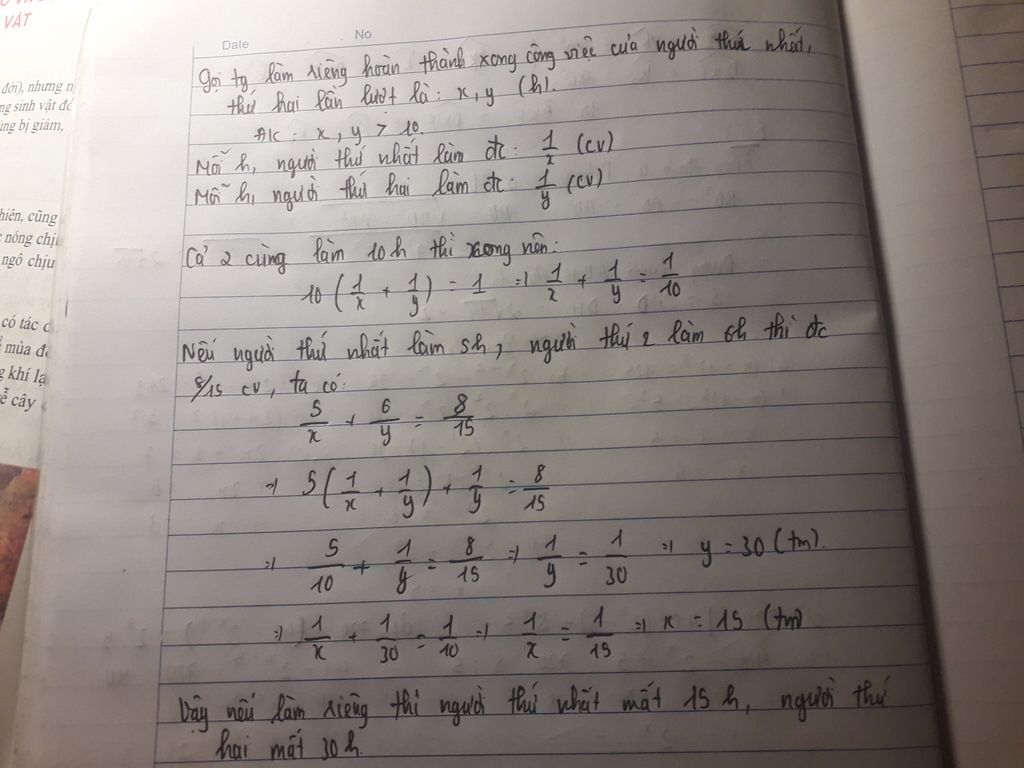 VẬT
đới), nhưng n
ng sinh vật để
ùng bị giảm,
hiên, cũng
nóng chịu
ngô chịu
có tác d
mùa đ
g khí lạ
ề cây
Date No.
Gọi tg làm riêng hoàn thành xong công việc của người thứ nhất,
thứ hai lần lượt là: x, y (h).
ĐK: x, y > 10.
Mỗi h, người thứ nhất làm đc: 1/x (cv)
Mỗi h, người thứ hai làm đc: 1/y (cv)
Cả 2 cùng làm 10h thì xong nên:
10 (1/x + 1/y) = 1 => 1/x + 1/y = 1/10
Nếu người thứ nhất làm 5h, người thứ 2 làm 6h thì đc
8/15 cv, ta có:
5/x + 6/y = 8/15
=> 5(1/x + 1/y) + 1/y = 8/15
=> 5/10 + 1/y = 8/15 => 1/y = 1/30 => y = 30 (tm).
=> 1/x + 1/30 = 1/10 => 1/x = 1/15 => x = 15 (tm)
Vậy nếu làm riêng thì người thứ nhất mất 15h, người thứ
hai mất 30h.